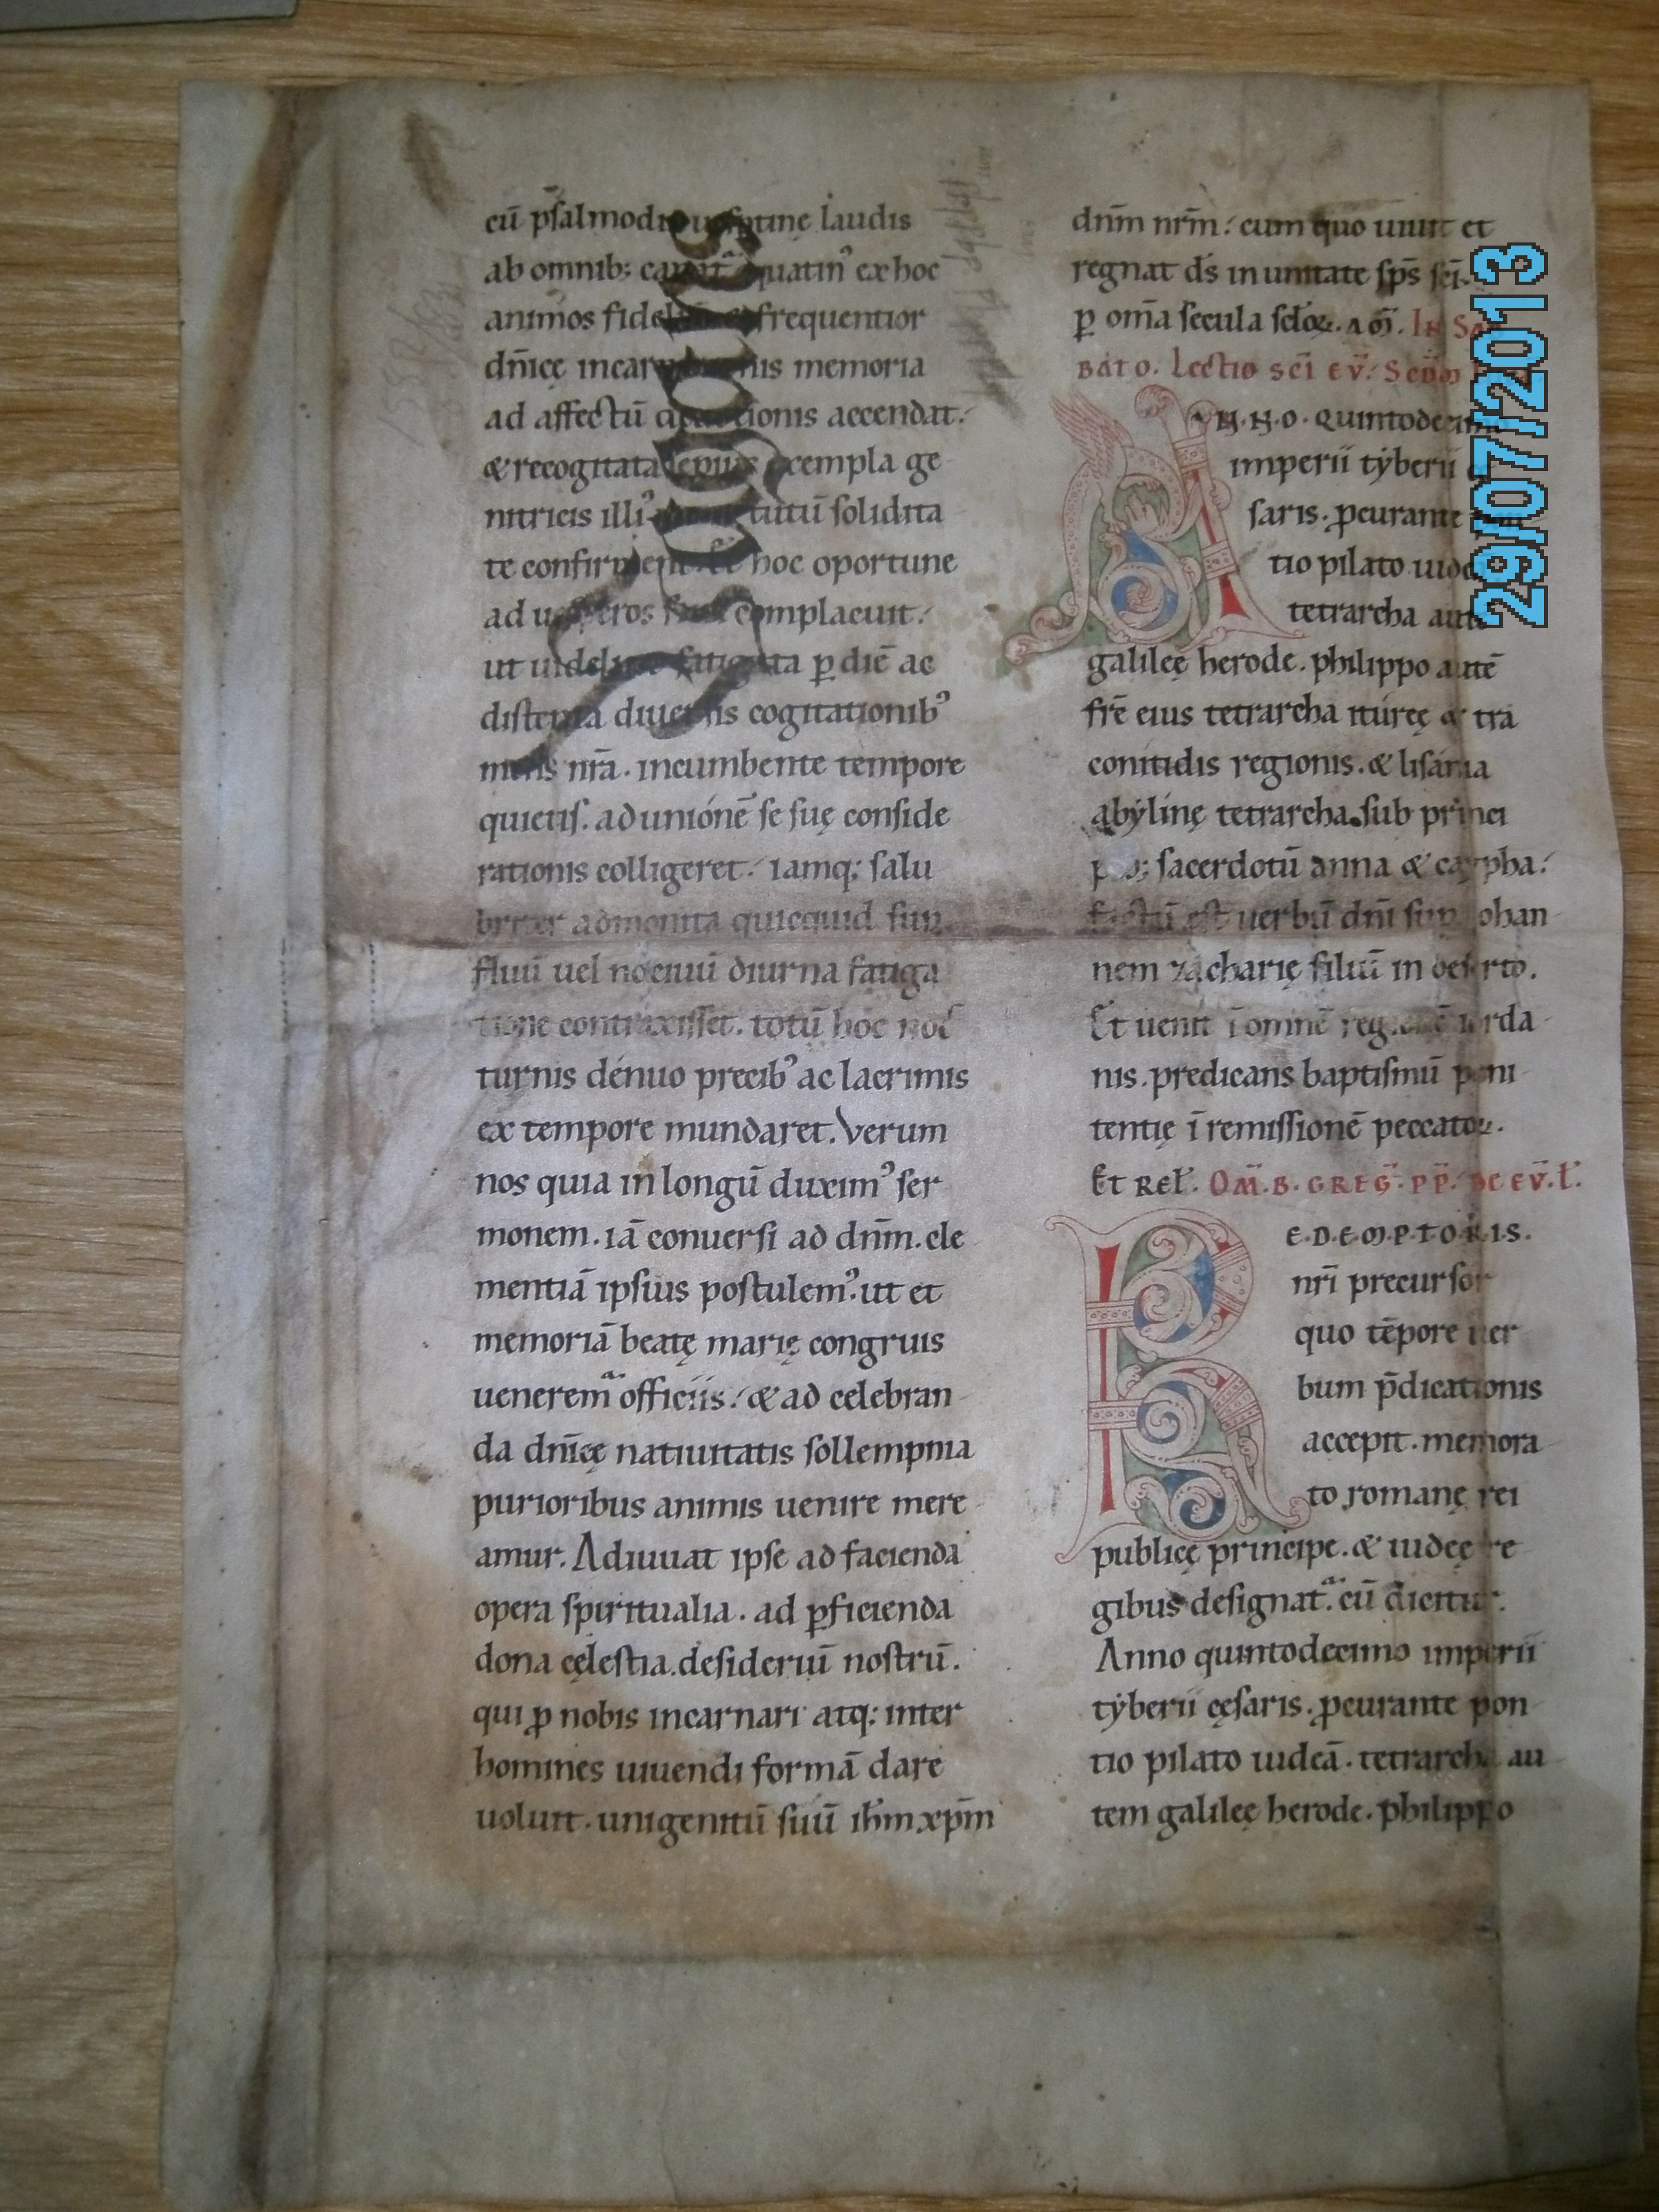 cū psalmodia uesptinę laudis
ab omnib; canat quatin᾽ ex hoc
animos fideliū frequentior
dn̄icę incarnationis memoria
ad affectū deuotionis accendat.
& recogitata sepius exempla ge
nitricis illi᾽ in uirtutū solidita
te confirment. Et hoc oportune
ad uesperos complacuit.
ut uidelicet fatigata ꝑ diē ac
distenta diuersis cogitationib᾽
mens nr̄a. incumbente tempore
quietis. ad unionē se suę conside
rationis colligeret. iamq; salu
briter admonita quicquid sup
fluū uel nociuū diurna fatiga
tione contraxisset. totū hoc noc
turnis denuo precib᾽ ac lacrimis
ex tempore mundaret. Verum
nos quia in longū duxim᾽ ser
monem. iā conuersi ad dn̄m. cle
mentiā ipsius postulem᾽. ut et
memoriā beatę marię congruis
ueneremᵃ officiis. & ad celebran
da dn̄icę natiuitatis sollempnia
purioribus animis uenire mere
amur. Adiuuat ipse ad facienda
opera spiritualia. ad ꝑficienda
dona cęlestia. desideriū nostrū.
qui ꝓ nobis incarnari atq; inter
homines uiuendi formā dare
uoluit. unigenitū suū ih̄m xp̄m
dn̄m nr̄m. cum quo uiuit et
regnat ds̄ in unitate sps̄ sc̄i.
ꝑ om̄a secula sc̄loꝝ. am̄. In Sab
bato. Lectio sc̄i ev̄. Scd̄m
A.N.N.O. quintodecimo
imperii tyberii cę
saris. ꝓcurante pon
tio pilato iudeā
tetrarcha autē
galileę herode. philippo autē
fr̄e eius tetrarcha ituręę & tra
conitidis regionis. & lisania
abylinę tetrarcha. sub princi
pib; sacerdotū anna & caypha.
factū est uerbū dn̄i sup iohan
nem zacharię filiū in deserto.
Et uenit ī omnē regionē iorda
nis. predicans baptismū peni
tentię ī remissionē peccatoꝝ.
Et rel̄. Om̄. B. GREG̅. PP̅. DE EV̅. L̅.
R.E.D.E.M.P.T.O.R.I.S.
nr̄i precursor
quo tēpore uer
bum p̄dicationis
accepit. memora
to romanę rei
publicę principe. & iudeę re
gibus designatᵃ. cū dicitur.
Anno quintodecimo imperii
tyberii cęsaris. ꝓcurante pon
tio pilato iudeā. tetrarcha au
tem galileę herode. philippo
29/07/2013